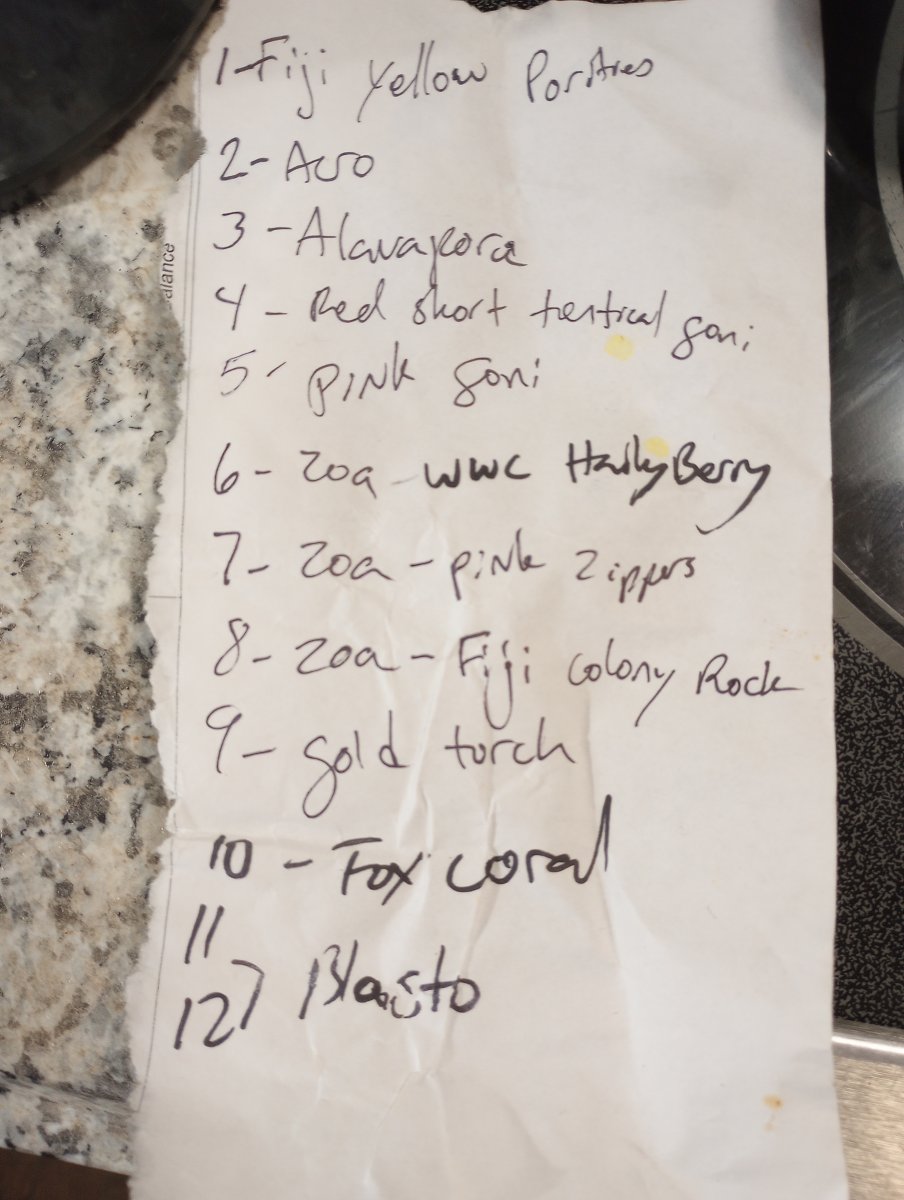 1-Fiji Yellow Porites
2-Acro
3-Alavapora
4- Red short tentical goni
5- PINK goni
6- zoa - WWC Hailey Berry
7- zoa - pink Zippers
8- zoa - Fiji colony Rock
9- gold torch
10 - Fox coral
11
12) Blasto
alance